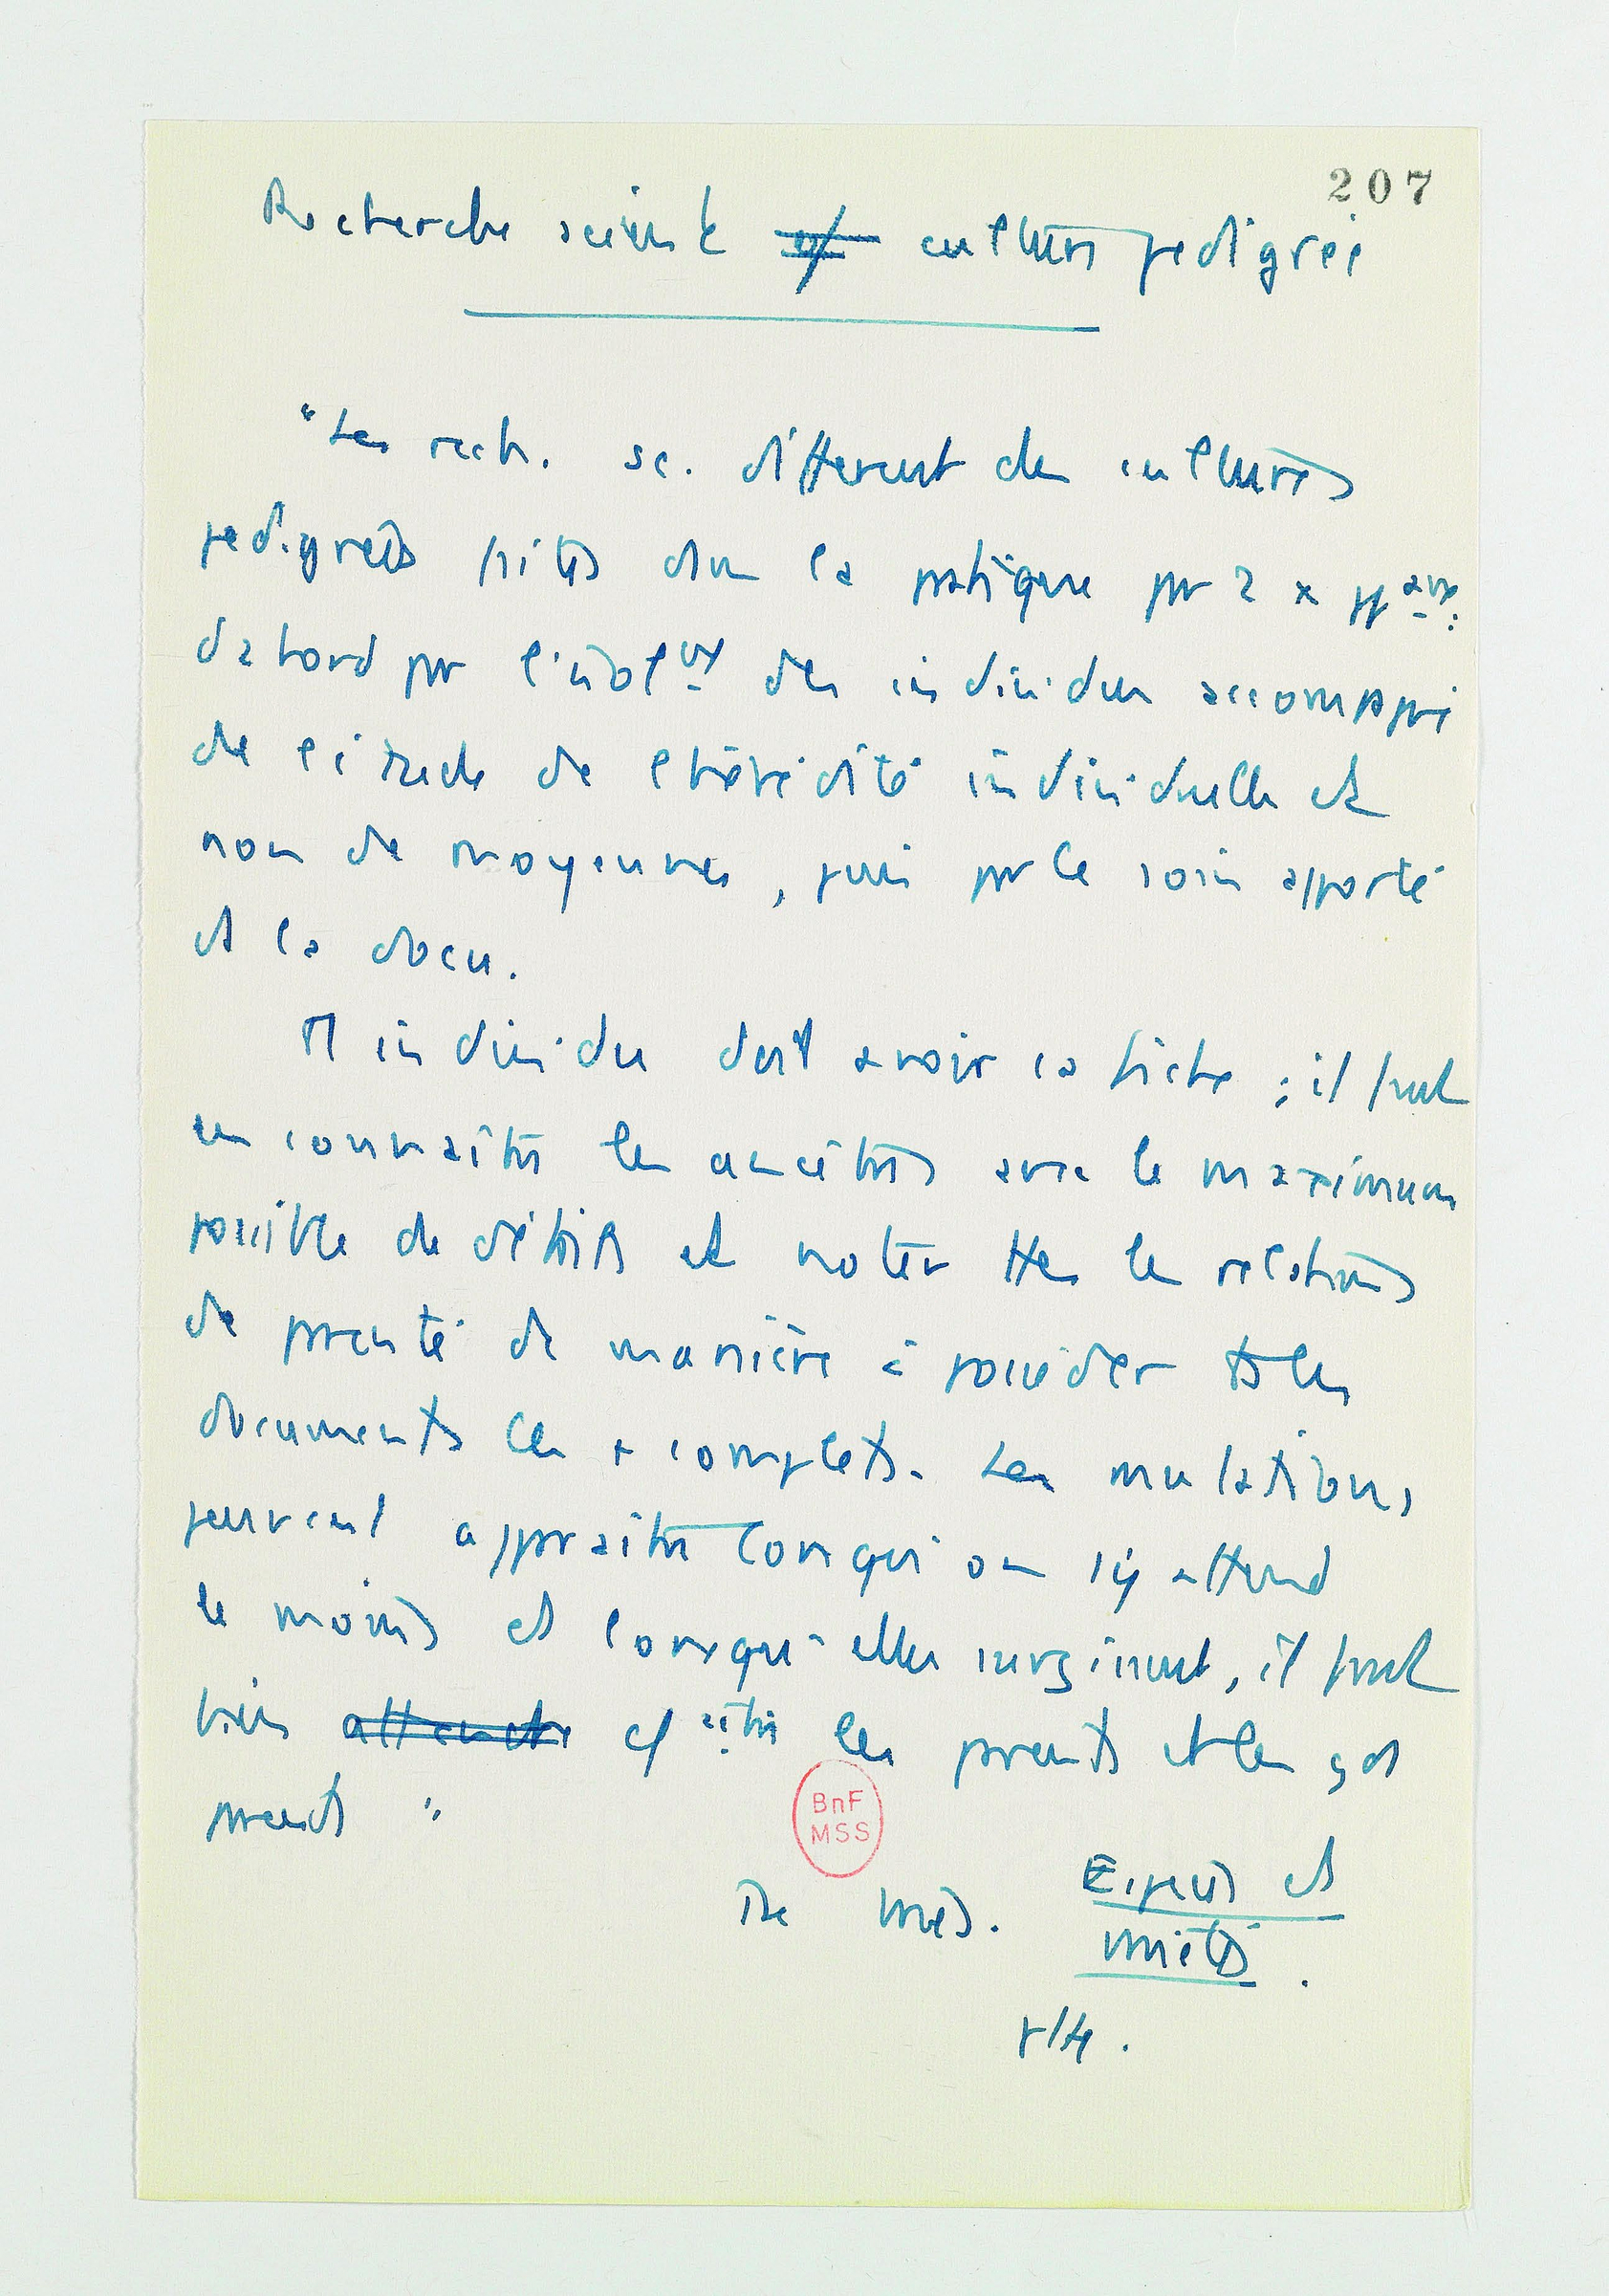 207
Recherche scient et cultures pedigree
"Les rech. sc. different des cultures
pedigrees faites dans la pratique par 2 x ppaux:
dabord par l'isolnt des individus accompagné
de l'étude de lhérédité individuelle et
non de moyennes, puis par le soin apporté
à la docu.
Tt individu doit avoir sa fiche ; il faut
en connaître les ancêtres avec le maximum
possible de détails et noter ttes les relations
de parenté de manière à posséder ts les
documents les + complets. Les mutations
peuvent apparaître lorsqu'on s'y attend
le moins et lorsqu'elles surgissent, il faut
bien attendre cître les parents et les gds
parents "
BnF
MSS
De Vries. Espèces et
variétés.